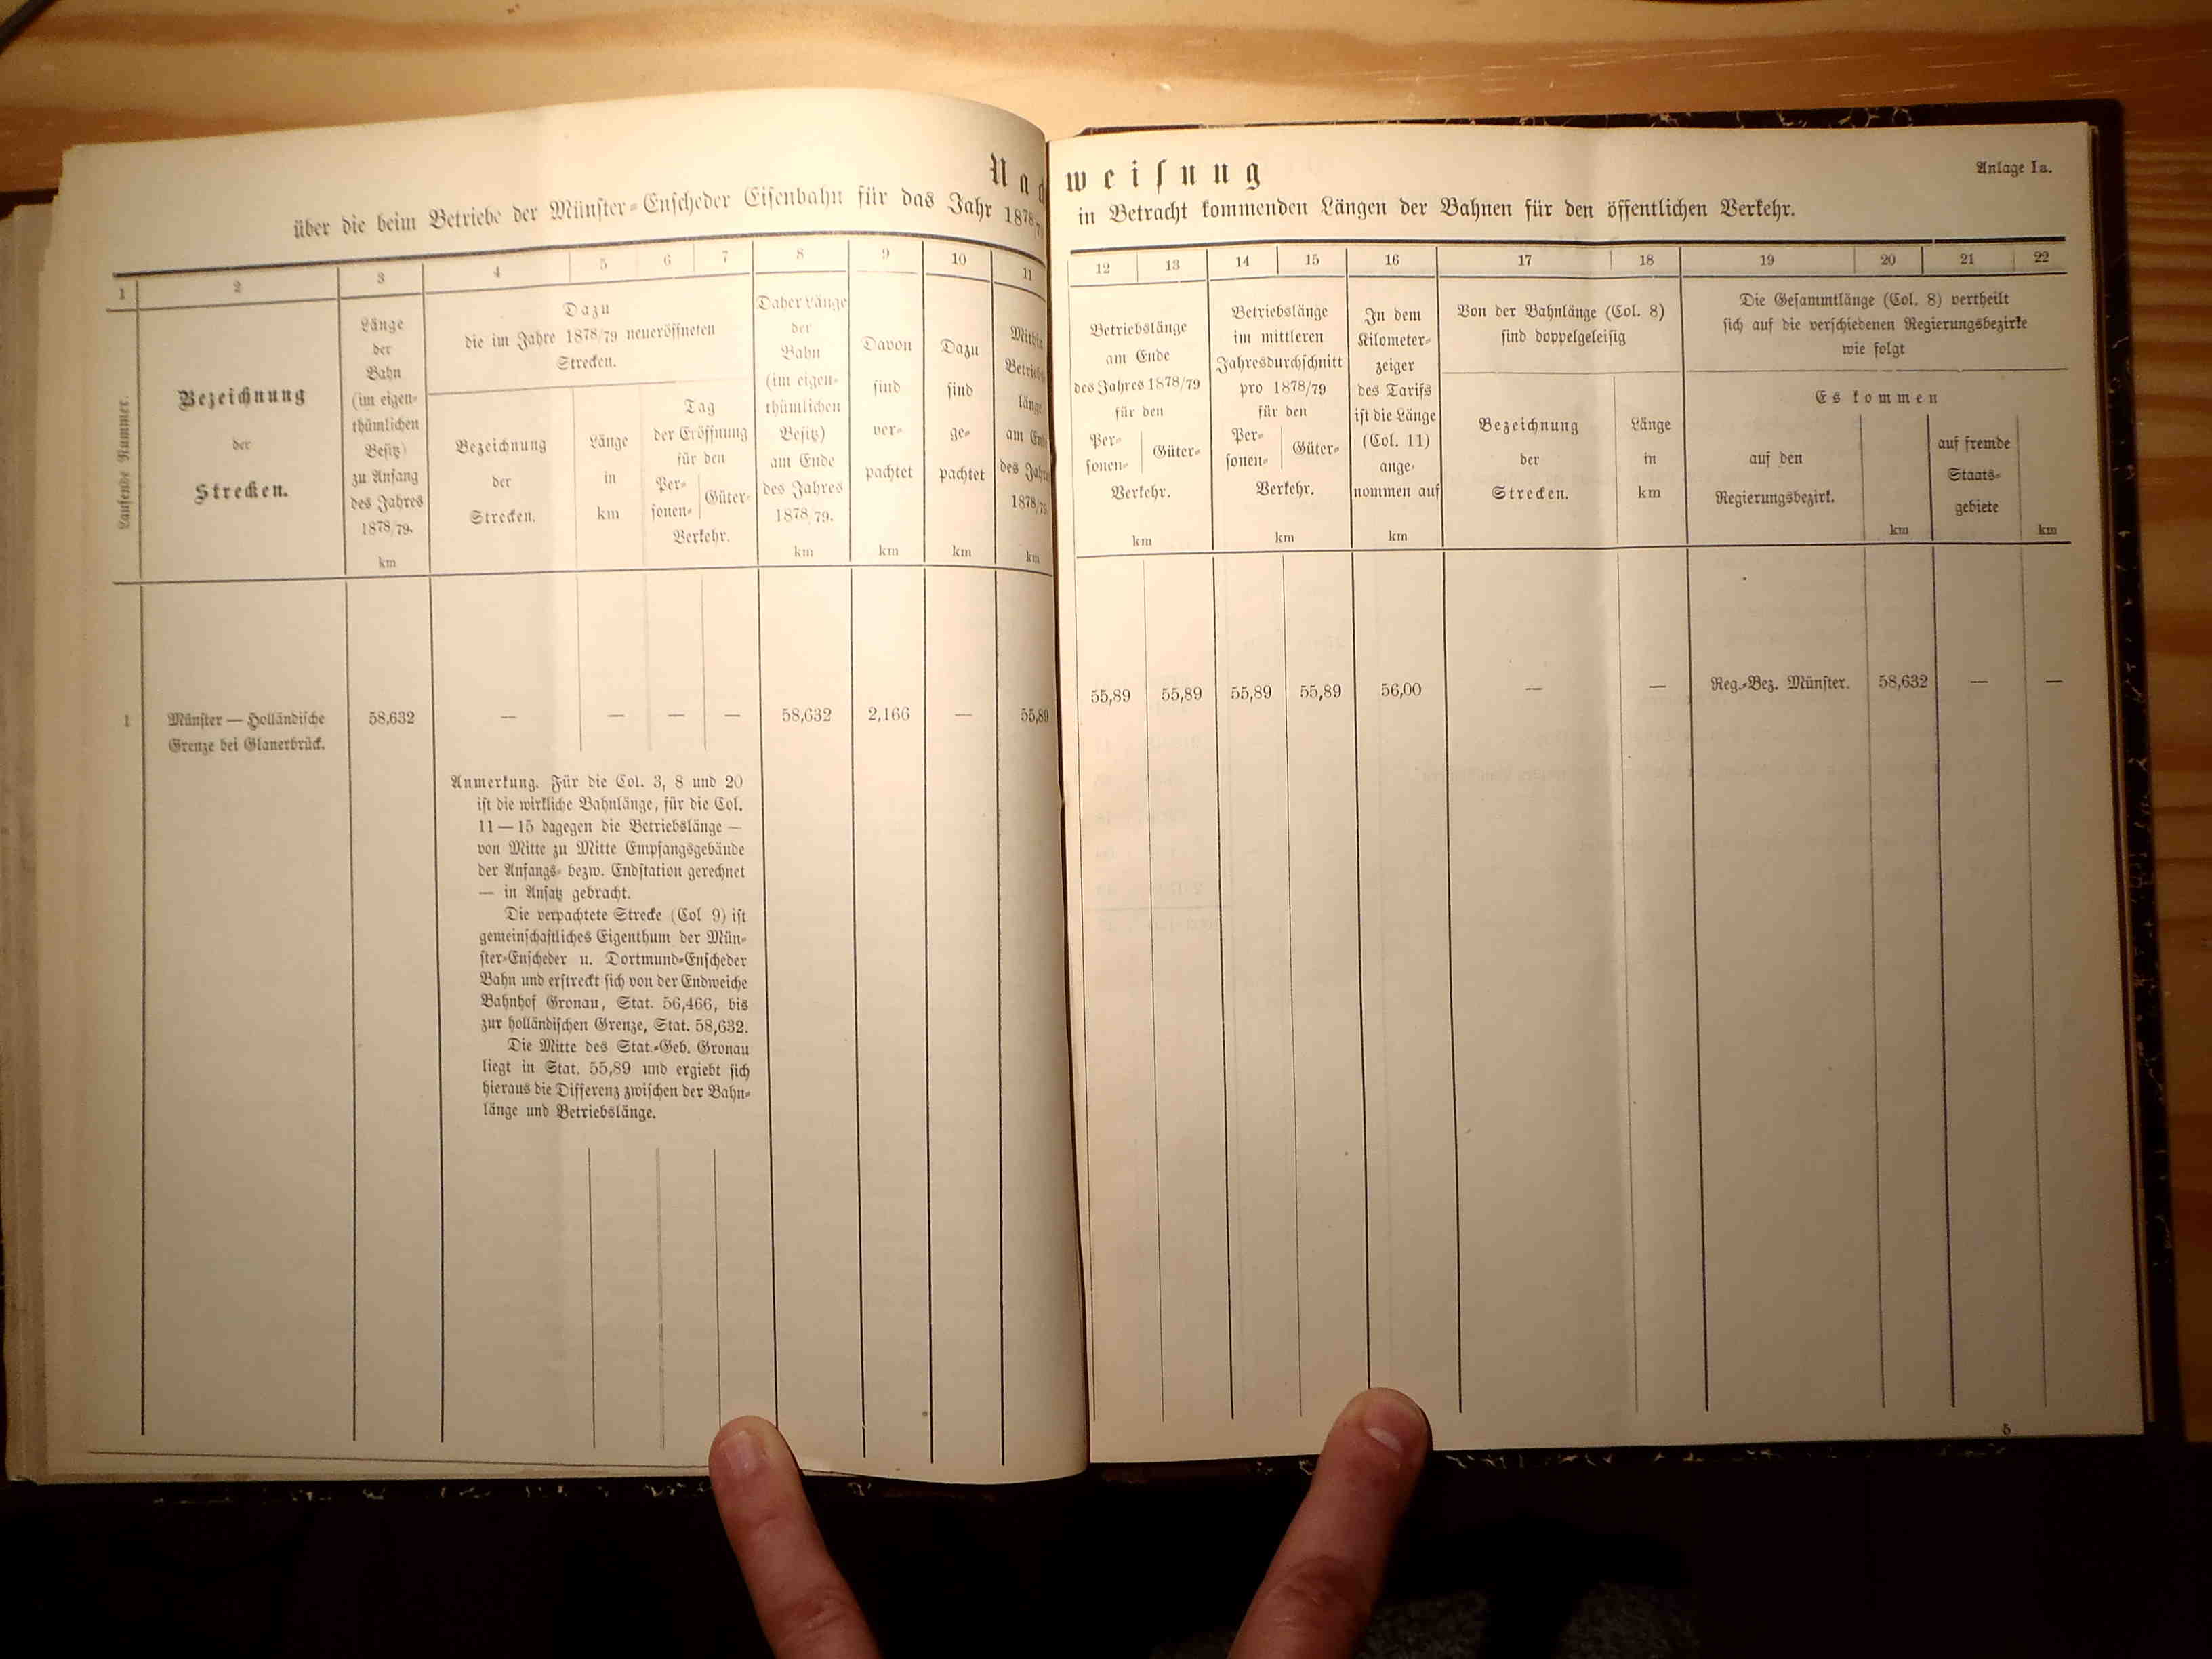 Nachweisung
Anlage Ia.
über die beim Betriebe der Münster-Enscheder Eisenbahn für das Jahr 1878/79 in Betracht kommenden Längen der Bahnen für den öffentlichen Verkehr.
1 2 3 4 5 6 7 8 9 10 11 12 13 14 15 16 17 18 19 20 21 22
Laufende Nummer.
Bezeichnung
der
Strecken.
Länge
der
Bahn
(im eigen-
thümlichen
Besitz)
zu Anfang
des Jahres
1878/79.
km
Dazu
die im Jahre 1878/79 neueröffneten
Strecken.
Bezeichnung
der
Strecken.
Länge
in
km
Tag
der Eröffnung
für den
Per-
sonen-
Güter-
Verkehr.
Daher Länge
der
Bahn
(im eigen-
thümlichen
Besitz)
am Ende
des Jahres
1878/79.
km
Davon
sind
ver-
pachtet
km
Dazu
sind
ge-
pachtet
km
Mithin
Betriebs-
länge
am Ende
des Jahres
1878/79.
km
Betriebslänge
am Ende
des Jahres 1878/79
für den
Per-
sonen-
Güter-
Verkehr.
km
Betriebslänge
im mittleren
Jahresdurchschnitt
pro 1878/79
für den
Per-
sonen-
Güter-
Verkehr.
km
In dem
Kilometer-
zeiger
des Tarifs
ist die Länge
(Col. 11)
ange-
nommen auf
km
Von der Bahnlänge (Col. 8)
sind doppelgeleisig
Bezeichnung
der
Strecken.
Länge
in
km
Die Gesammtlänge (Col. 8) vertheilt
sich auf die verschiedenen Regierungsbezirke
wie folgt
Es kommen
auf den
Regierungsbezirk.
km
auf fremde
Staats-
gebiete
km
1 Münster — Holländische 58,632 — — — — 58,632 2,166 — 55,89 55,89 55,89 55,89 55,89 56,00 — — Reg.-Bez. Münster. 58,632 — —
Grenze bei Glanerbrück.
Anmerkung. Für die Col. 3, 8 und 20
ist die wirkliche Bahnlänge, für die Col.
11 — 15 dagegen die Betriebslänge —
von Mitte zu Mitte Empfangsgebäude
der Anfangs- bezw. Endstation gerechnet
— in Ansatz gebracht.
Die verpachtete Strecke (Col 9) ist
gemeinschaftliches Eigenthum der Mün-
ster-Enscheder u. Dortmund-Enscheder
Bahn und erstreckt sich von der Endweiche
Bahnhof Gronau, Stat. 56,466, bis
zur holländischen Grenze, Stat. 58,632.
Die Mitte des Stat.-Geb. Gronau
liegt in Stat. 55,89 und ergiebt sich
hieraus die Differenz zwischen der Bahn-
länge und Betriebslänge.
5